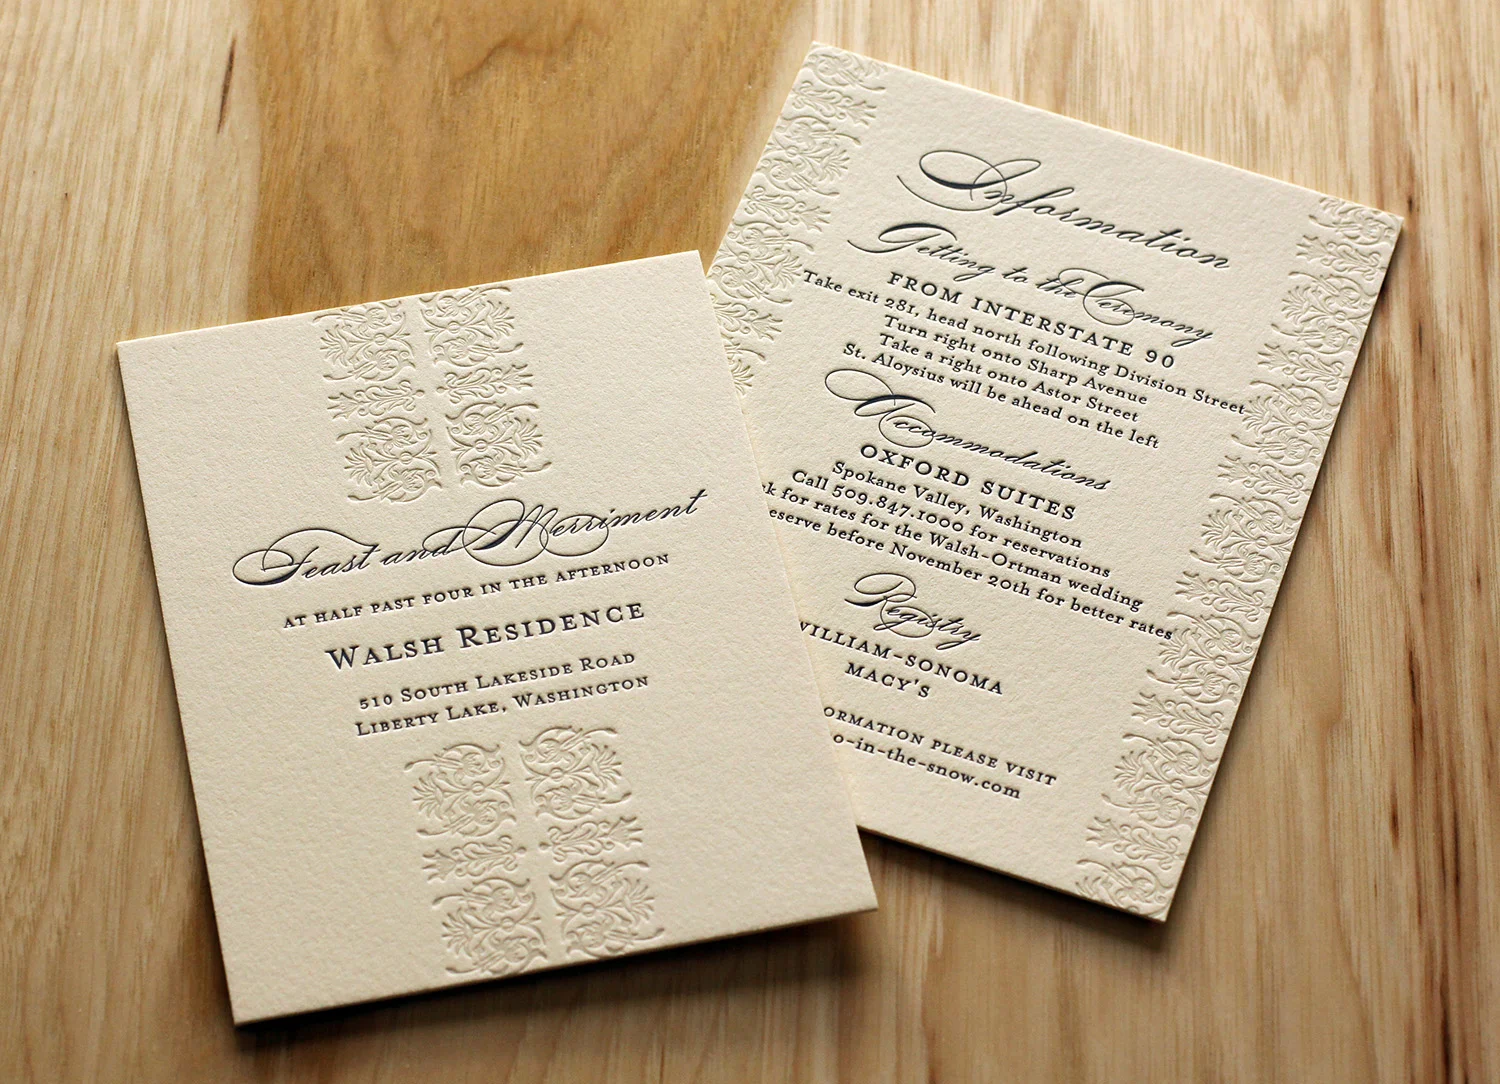 Feast and Merriment
AT HALF PAST FOUR IN THE AFTERNOON
WALSH RESIDENCE
510 SOUTH LAKESIDE ROAD
LIBERTY LAKE, WASHINGTON
Information
Getting to the Ceremony
FROM INTERSTATE 90
Take exit 281, head north following Division Street
Turn right onto Sharp Avenue
Take a right onto Astor Street
St. Aloysius will be ahead on the left
Accommodations
OXFORD SUITES
Spokane Valley, Washington
Call 509.847.1000 for reservations
for rates for the Walsh-Ortman wedding
before November 20th for better rates
Registry
WILLIAM-SONOMA
MACY'S
PLEASE VISIT
o-in-the-snow.com